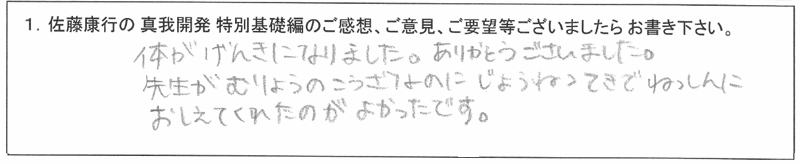 1. 佐藤康行の 真我開発 特別基礎編のご感想、ご意見、ご要望等ございましたら お書き下さい。
体が げんきになりました。ありがとうございました。
先生が むりょうのこうざなのに じょうねつてきで ねっしんに
おしえてくれたのが よかったです。